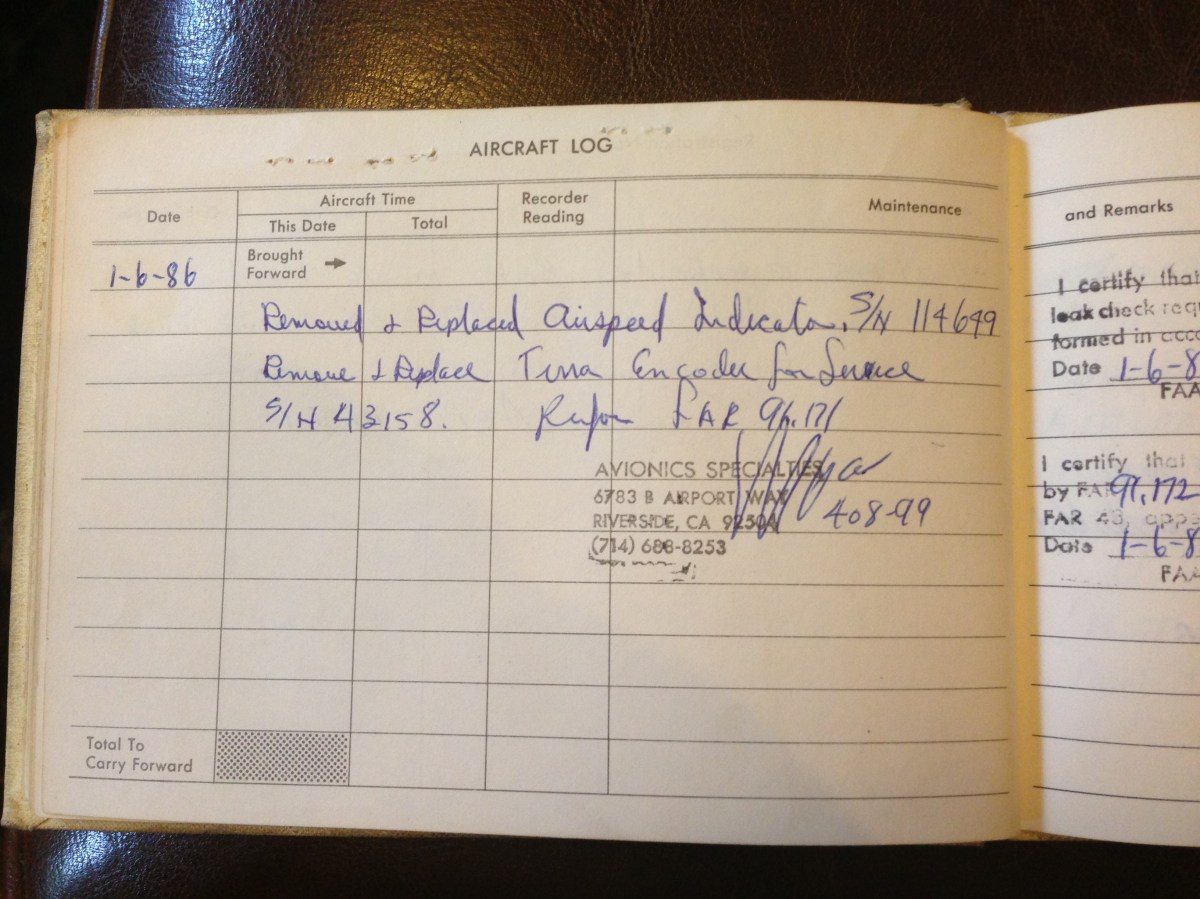 AIRCRAFT LOG
Date
Aircraft Time
This Date
Total
Recorder
Reading
Maintenance
1-6-86
Brought
Forward
Removed & Replaced Airspeed Indicator. S/N 114649
Remove & Replace Terra Encoder for Service
S/N 43158. FAR 91.171
AVIONICS SPECIALTIES
6783 B AIRPORT WAY
RIVERSIDE, CA 92504
(714) 688-8253
408-99
Total To
Carry Forward
and Remarks
I certify that
leak check requ
formed in acco
Date 1-6-8
FAA
I certify that
by FAR 91.172
FAR 43, appe
Date 1-6-8
FAA